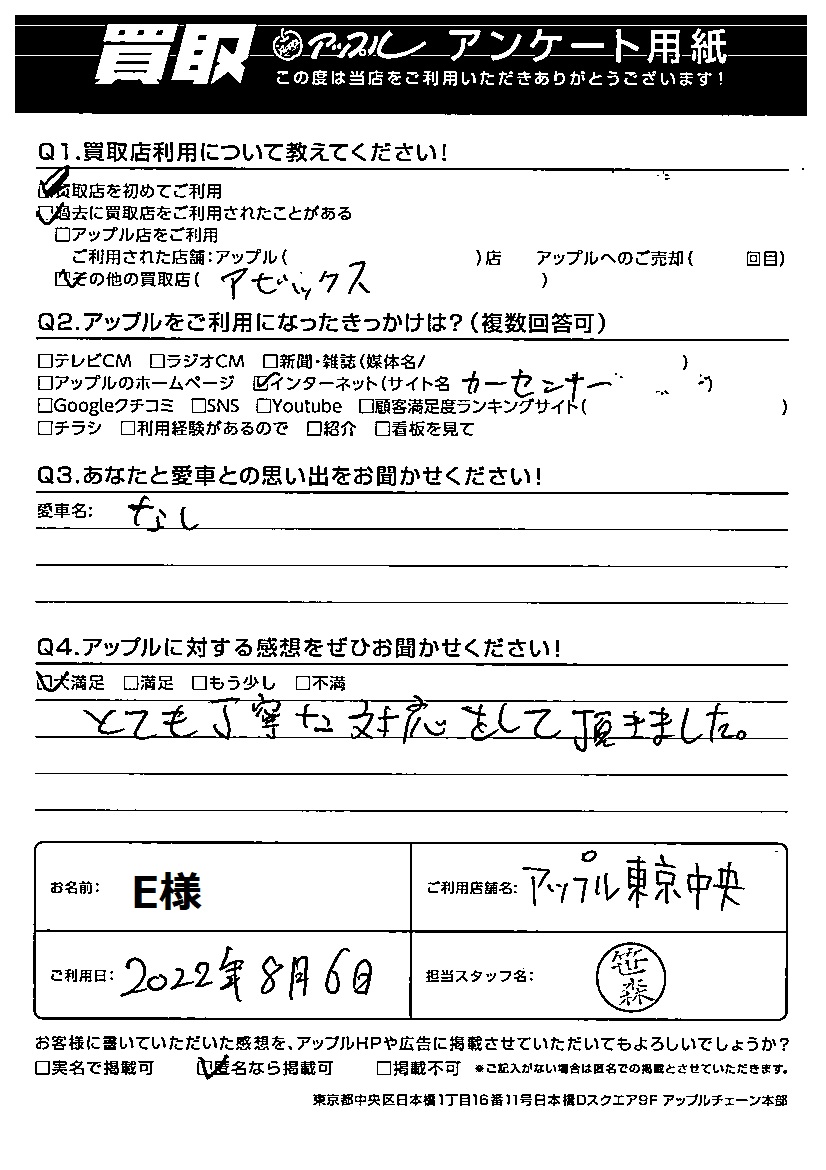 買取 アップル アンケート用紙
この度は当店をご利用いただきありがとうございます!
Q1.買取店利用について教えてください!
買取店を初めてご利用
過去に買取店をご利用されたことがある
□アップル店をご利用
ご利用された店舗:アップル( )店 アップルへのご売却( 回目)
その他の買取店( アセックス )
Q2.アップルをご利用になったきっかけは?(複数回答可)
□テレビCM □ラジオCM □新聞・雑誌(媒体名/ )
□アップルのホームページ ☑インターネット(サイト名 カーセンサー )
□Googleクチコミ □SNS □Youtube □顧客満足度ランキングサイト( )
□チラシ □利用経験があるので □紹介 □看板を見て
Q3.あなたと愛車との思い出をお聞かせください!
愛車名: なし
Q4.アップルに対する感想をぜひお聞かせください!
☑大満足 □満足 □もう少し □不満
とても丁寧な対応をして頂きました。
お名前: E様
ご利用店舗名: アップル東京中央
ご利用日: 2022年8月6日
担当スタッフ名: 笹森
お客様に書いていただいた感想を、アップルHPや広告に掲載させていただいてもよろしいでしょうか?
□実名で掲載可 ☑匿名なら掲載可 □掲載不可 ※ご記入がない場合は匿名での掲載とさせていただきます。
東京都中央区日本橋1丁目16番11号日本橋Dスクエア9F アップルチェーン本部